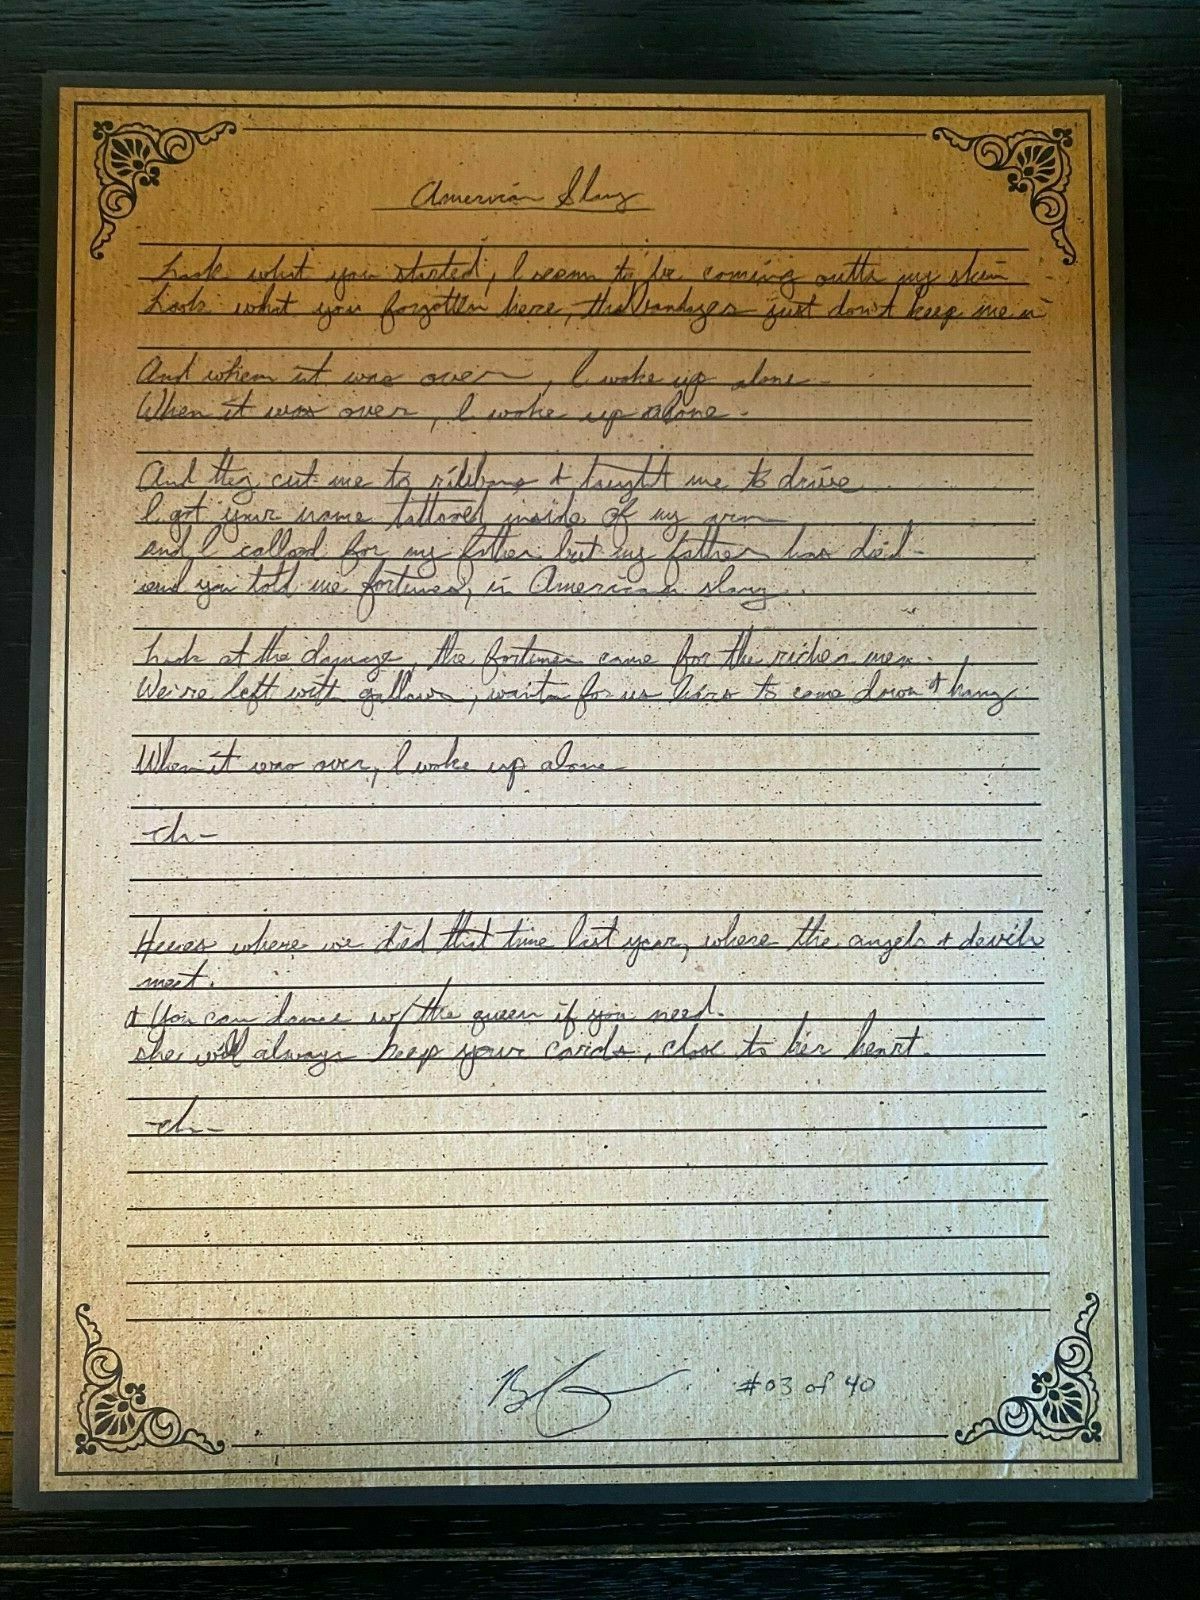 American Slang
Look what you started, I seem to be coming outta my skin
Look what you forgotten here, the bandages just don't keep me in
And when it was over, I woke up alone.
When it was over, I woke up alone.
And they cut me to ribbons & taught me to drive
I got your name tattooed inside of my arm
and I called for my father but my father has died.
and you told me fortunes, in American slang.
Look at the damage, the fortunes came for the richer men.
We're left with gallows, waitin for us liars to come down & hang
When it was over, I woke up alone
-ch-
Heres where we died that time last year, where the angels & devils
meet.
& You can dance w/ the queen if you need.
she will always keep your cards, close to her heart.
-ch-
#03 of 40